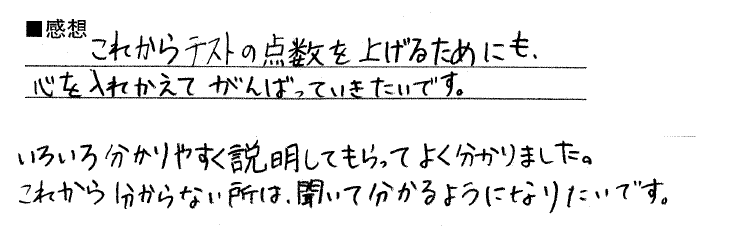 ■感想
これからテストの点数を上げるためにも、
心を入れかえてがんばっていきたいです。
いろいろ分かりやすく説明してもらってよく分かりました。
これから分からない所は、聞いて分かるようになりたいです。